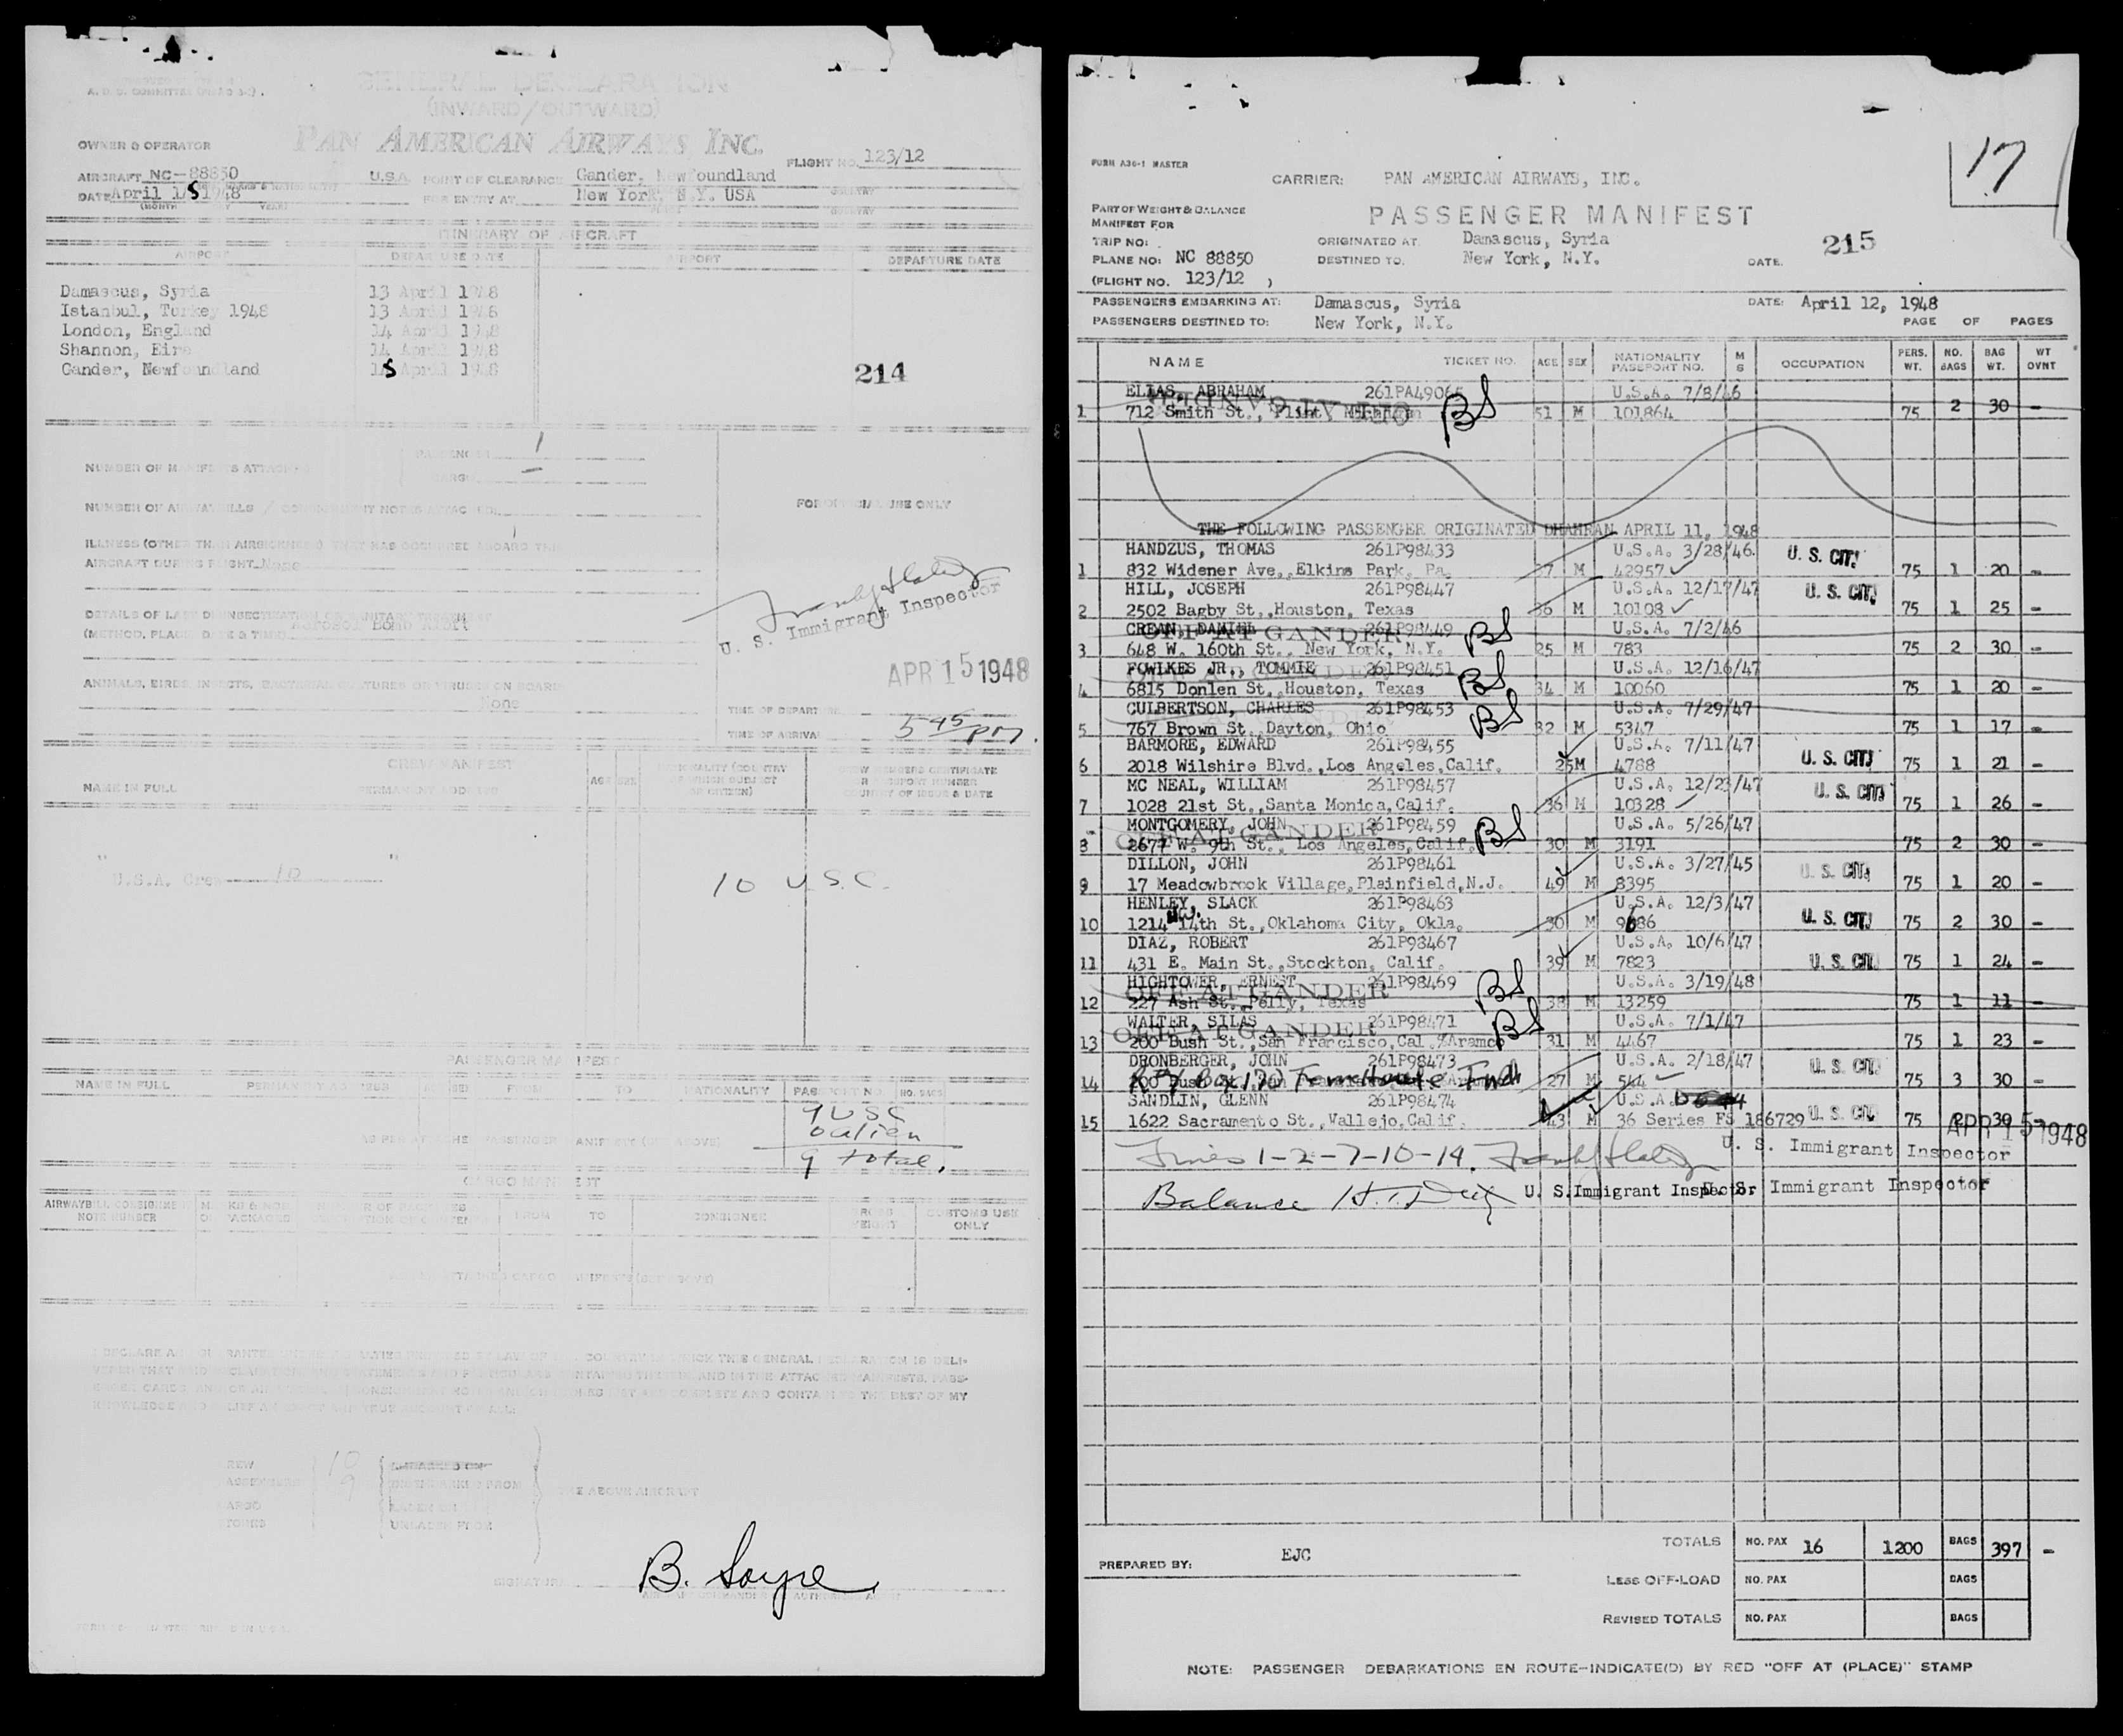 GENERAL DECLARATION
(INWARD/OUTWARD)
PAN AMERICAN AIRWAYS INC.
OWNER & OPERATOR
FLIGHT NO. 123/12
AIRCRAFT NC-88850 U.S.A. POINT OF CLEARANCE Gander, Newfoundland
DATE April 15 1948 FOR ENTRY AT New York, N.Y. USA
(MONTH YEAR)
ITINERARY OF AIRCRAFT
AIRPORT DEPARTURE DATE AIRPORT DEPARTURE DATE
Damascus, Syria 13 April 1948
Istanbul, Turkey 1948 13 April 1948
London, England 14 April 1948
Shannon, Eire 14 April 1948
Gander, Newfoundland 15 April 1948
214
NUMBER OF MANIFESTS ATTACHED PASSENGER 1
CARGO -
NUMBER OF AIRWAYBILLS / CONSIGNMENT NOTES ATTACHED
FOR OFFICIAL USE ONLY
ILLNESS (OTHER THAN AIRSICKNESS) THAT HAS OCCURRED ABOARD THE
AIRCRAFT DURING FLIGHT None
U. S. Immigrant Inspector
DETAILS OF LAST DISINSECTIZATION OR SANITARY TREATMENT
(METHOD, PLACE, DATE & TIME) Aerosol Bomb
APR 15 1948
ANIMALS, BIRDS, INSECTS, BACTERIAL CULTURES OR VIRUSES ON BOARD
None
TIME OF DEPARTURE
TIME OF ARRIVAL 5 45 pm.
CREW MANIFEST
NAME IN FULL PERMANENT ADDRESS AGE SEX NATIONALITY (COUNTRY OF WHICH SUBJECT OR CITIZEN) CREW MEMBERS CERTIFICATE OR PASSPORT NUMBER COUNTRY OF ISSUE & DATE
" "
U.S.A. Crew 10
10 U.S.C.
PASSENGER MANIFEST
NAME IN FULL PERMANENT ADDRESS AGE SEX FROM TO NATIONALITY PASSPORT NO. NO. BAGS
9 USC
AS PER ATTACHED PASSENGER MANIFEST (SEE ABOVE) 0 alien
9 total.
CARGO MANIFEST
AIRWAYBILL CONSIGNMENT NOTE NUMBER FROM TO CONSIGNEE GROSS WEIGHT CUSTOMS USE ONLY
ATTACHED CARGO MANIFESTS (SEE ABOVE)
CREW 10
PASSENGERS 9 DISEMBARKED FROM
CARGO
STORES UNLADEN FROM
THE ABOVE AIRCRAFT
SIGNATURE B. Sayre
FORM A36-1 MASTER
17
CARRIER: PAN AMERICAN AIRWAYS, INC.
PART OF WEIGHT & BALANCE
MANIFEST FOR
PASSENGER MANIFEST
TRIP NO:
ORIGINATED AT. Damascus, Syria
215
PLANE NO: NC 88850
DESTINED TO. New York, N.Y.
DATE.
(FLIGHT NO. 123/12 )
PASSENGERS EMBARKING AT: Damascus, Syria DATE: April 12, 1948
PASSENGERS DESTINED TO: New York, N.Y. PAGE OF PAGES
NAME TICKET NO. AGE SEX NATIONALITY PASSPORT NO. M S OCCUPATION PERS. WT. NO. BAGS BAG WT. WT OVNT
ELIAS, ABRAHAM 261PA49065 U.S.A. 7/8/46
1 712 Smith St., Flint Michigan BS 51 M 101864 75 2 30 -
THE FOLLOWING PASSENGER ORIGINATED DHAHRAN APRIL 11, 1948
HANDZUS, THOMAS 261P98433 U.S.A. 3/28/46 U. S. CIT.
1 832 Widener Ave., Elkins Park, Pa. 37 M 42957 75 1 20 -
HILL, JOSEPH 261P98447 U.S.A. 12/17/47 U. S. CIT.
2 2502 Bagby St., Houston, Texas 36 M 10108 75 1 25 -
CREAN, DANIEL 261P98449 U.S.A. 7/2/46
OFF AT GANDER BS
3 648 W. 160th St., New York, N.Y. 25 M 783 75 2 30 -
FOWLKES JR., TOMMIE 261P98451 U.S.A. 12/16/47
OFF AT GANDER BS
4 6815 Donlen St., Houston, Texas 34 M 10060 75 1 20 -
CULBERTSON, CHARLES 261P98453 U.S.A. 7/29/47
OFF AT GANDER BS
5 767 Brown St., Dayton, Ohio 32 M 5347 75 1 17 -
BARMORE, EDWARD 261P98455 U.S.A. 7/11/47
6 2018 Wilshire Blvd., Los Angeles, Calif. 25 M 4788 U. S. CIT. 75 1 21 -
MC NEAL, WILLIAM 261P98457 U.S.A. 12/23/47 U. S. CIT.
7 1028 21st St., Santa Monica, Calif. 36 M 10328 75 1 26 -
MONTGOMERY, JOHN 261P98459 U.S.A. 5/26/47
OFF AT GANDER BS
8 2677 W. 9th St., Los Angeles, Calif. 30 M 3191 75 2 30 -
DILLON, JOHN 261P98461 U.S.A. 3/27/45 U. S. CIT.
9 17 Meadowbrook Village, Plainfield, N.J. 49 M 8395 75 1 20 -
HENLEY, SLACK 261P98463 U.S.A. 12/3/47
10 1214 NW. 14th St., Oklahoma City, Okla. 30 M 9686 U. S. CIT. 75 2 30 -
DIAZ, ROBERT 261P98467 U.S.A. 10/6/47
11 431 E. Main St., Stockton, Calif. 39 M 7823 U. S. CIT. 75 1 24 -
HIGHTOWER, ERNEST 261P98469 U.S.A. 3/19/48
OFF AT GANDER BS
12 227 Ash St., Pelly, Texas 38 M 13259 75 1 11 -
WALTER, SILAS 261P98471 U.S.A. 7/1/47
OFF AT GANDER BS
13 200 Bush St., San Francisco, Cal. %Aramco 31 M 4467 75 1 23 -
DRONBERGER, JOHN 261P98473 U.S.A. 2/18/47 U. S. CIT.
14 200 Bush Box 190 27 M 544 75 3 30 -
SANDLIN, GLENN 261P98474 U.S.A.
15 1622 Sacramento St., Vallejo, Calif. 43 M 36 Series FS 186729 U. S. CIT. 75 2 30
APR 15 1948
Lines 1-2-7-10-14.
U. S. Immigrant Inspector
Balance
U. S. Immigrant Inspector U. S. Immigrant Inspector
TOTALS NO. PAX 16 1200 BAGS 397 -
PREPARED BY: EJC
LESS OFF-LOAD NO. PAX BAGS
REVISED TOTALS NO. PAX BAGS
NOTE: PASSENGER DEBARKATIONS EN ROUTE-INDICATE(D) BY RED "OFF AT (PLACE)" STAMP